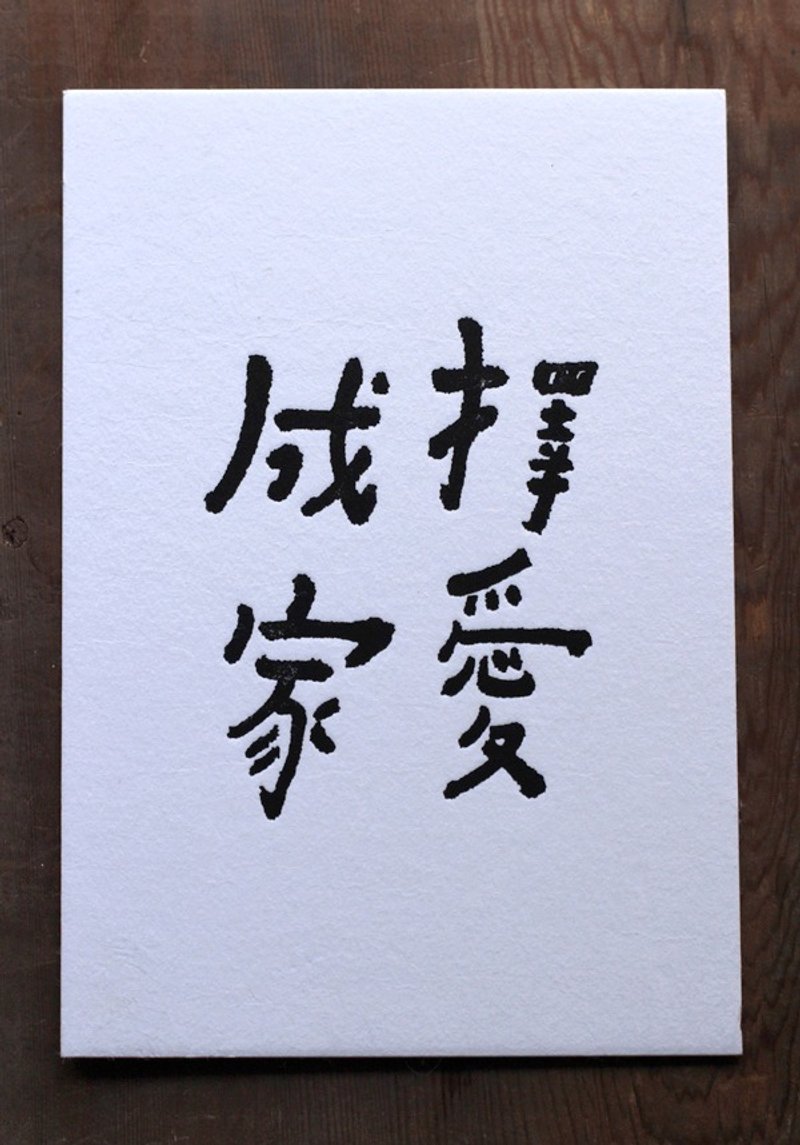 擇愛
成家